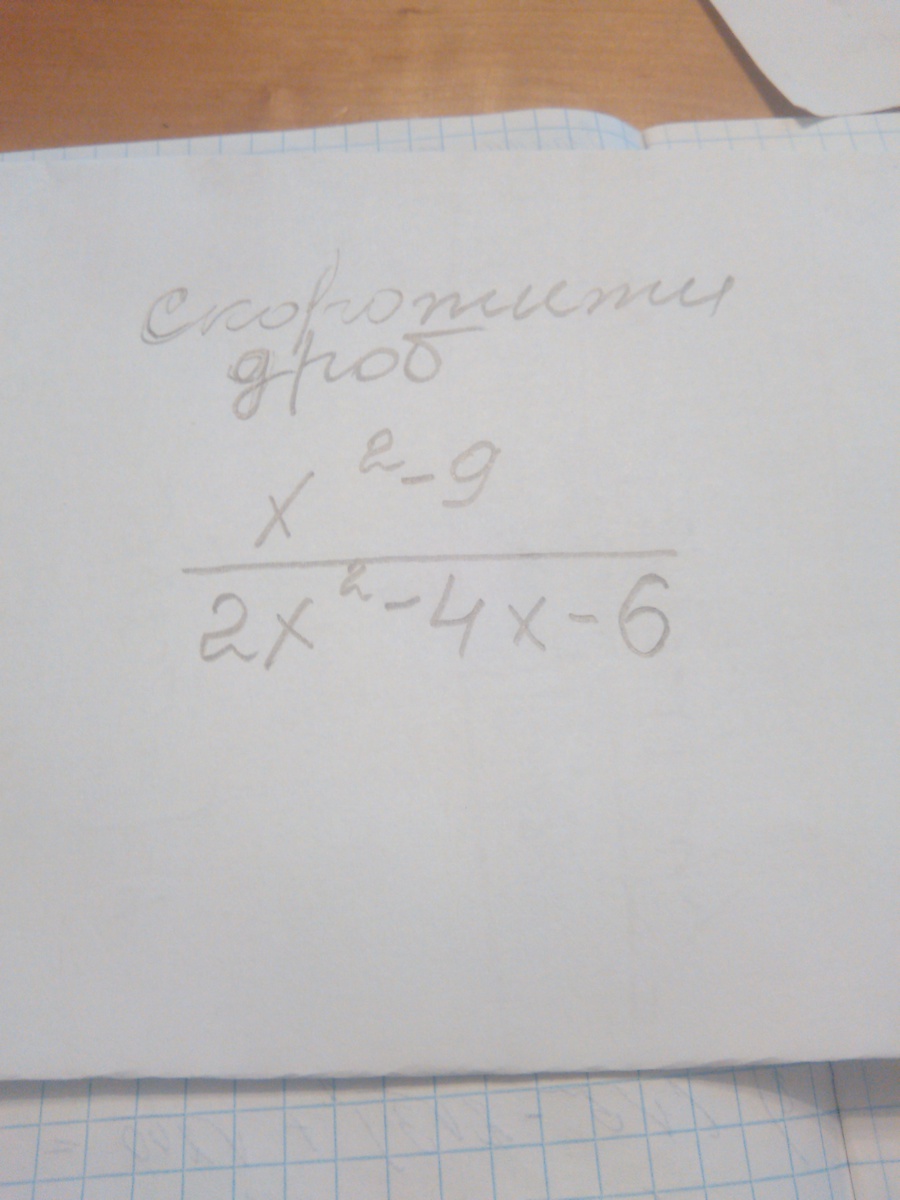 скоротити
дроб
x² - 9
2x² - 4x - 6